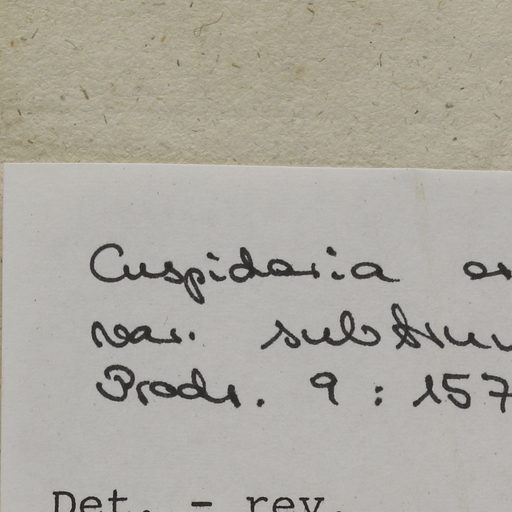 Cuspidaria
var.
Prodr. 9 : 157
Det. - rev.